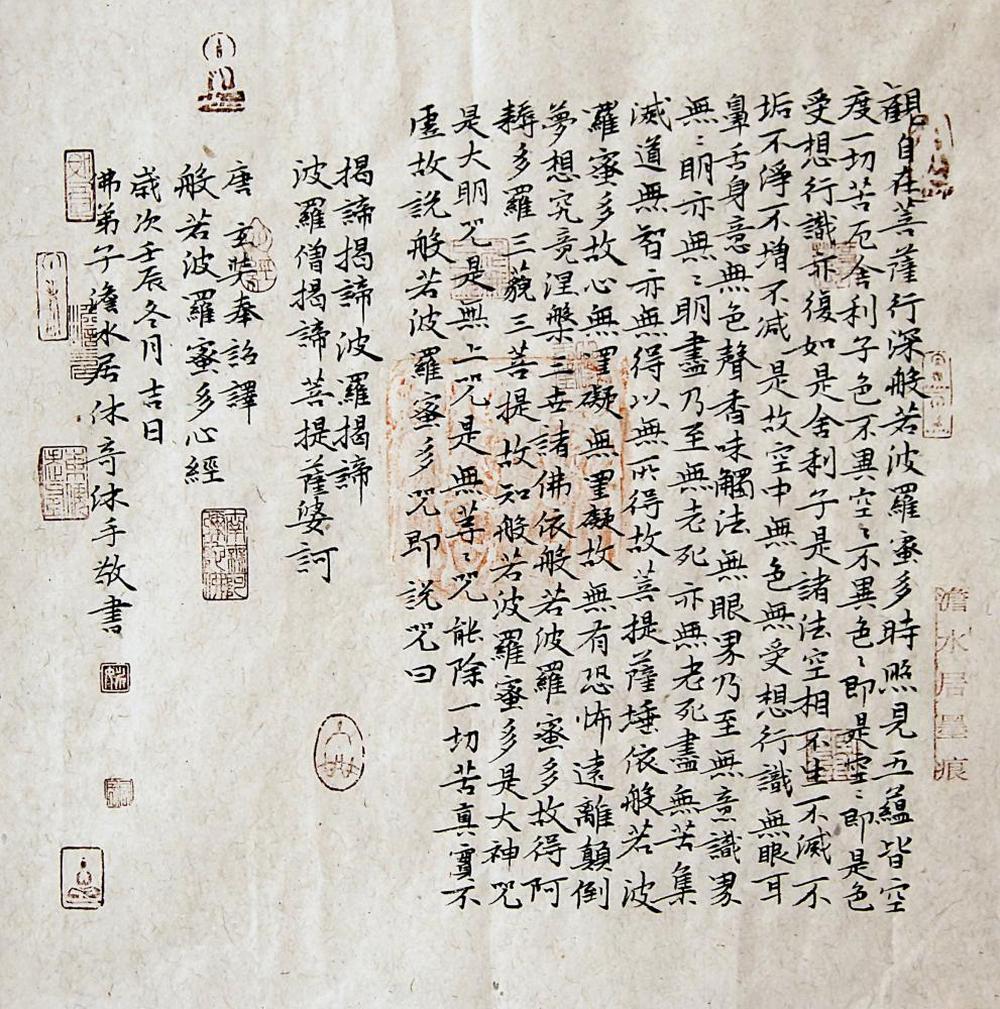 觀自在菩薩行深般若波羅蜜多時照見五蘊皆空
度一切苦厄舍利子色不異空〻不異色〻即是空〻即是色
受想行識亦復如是舍利子是諸法空相不生不滅不
垢不淨不增不減是故空中無色無受想行識無眼耳
鼻舌身意無色聲香味觸法無眼界乃至無意識界
無〻明亦無〻明盡乃至無老死亦無老死盡無苦集
滅道無智亦無得以無所得故菩提薩埵依般若波
羅蜜多故心無罣礙無罣礙故無有恐怖遠離顛倒
夢想究竟涅槃三世諸佛依般若波羅蜜多故得阿
耨多羅三藐三菩提故知般若波羅蜜多是大神咒
是大明咒是無上咒是無等〻咒能除一切苦真實不
虛故說般若波羅蜜多咒即說咒曰
揭諦揭諦波羅揭諦
波羅僧揭諦菩提薩婆訶
唐 玄奘奉詔譯
般若波羅蜜多心經
歲次壬辰冬月吉日
佛弟子澹水居休奇休手敬書
澹水居墨痕